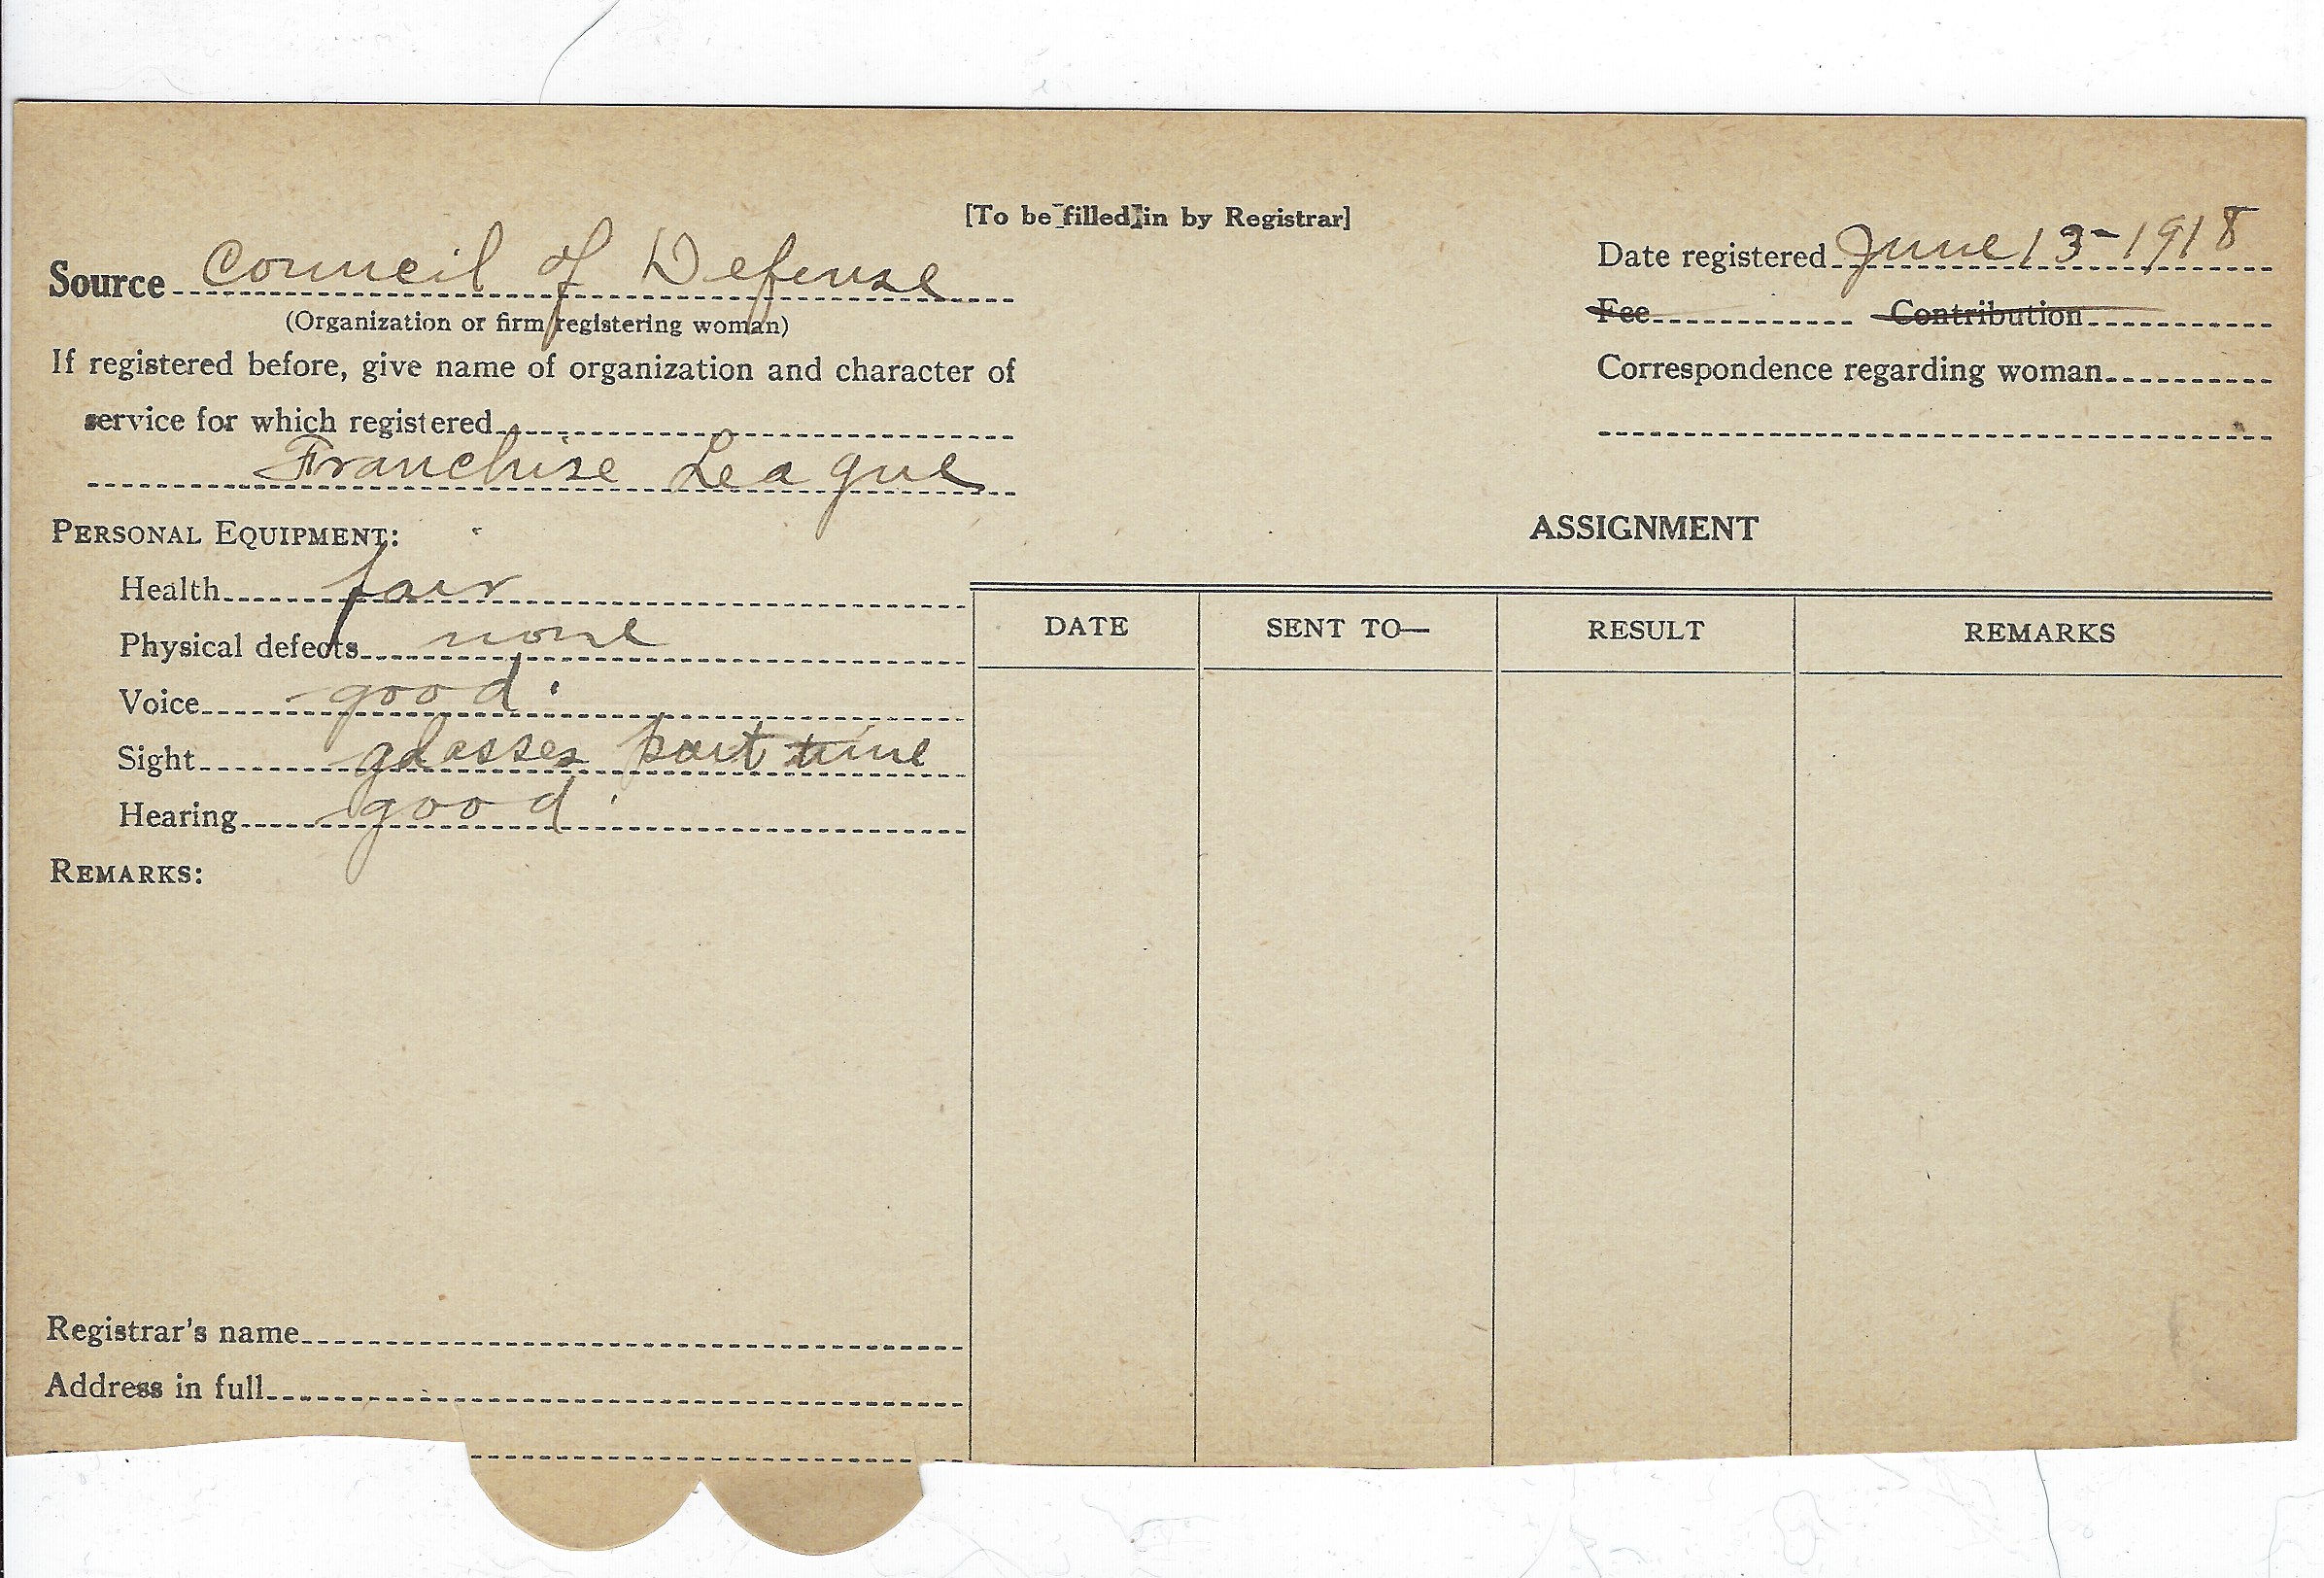 [To be filled in by Registrar]
Source Council of Defense
(Organization or firm registering woman)
If registered before, give name of organization and character of
service for which registered
Franchise League
Date registered June 13-1918
Fee Contribution
Correspondence regarding woman
PERSONAL EQUIPMENT:
Health fair
Physical defects none
Voice good.
Sight glasses part time
Hearing good.
REMARKS:
Registrar's name
Address in full
ASSIGNMENT
DATE SENT TO— RESULT REMARKS